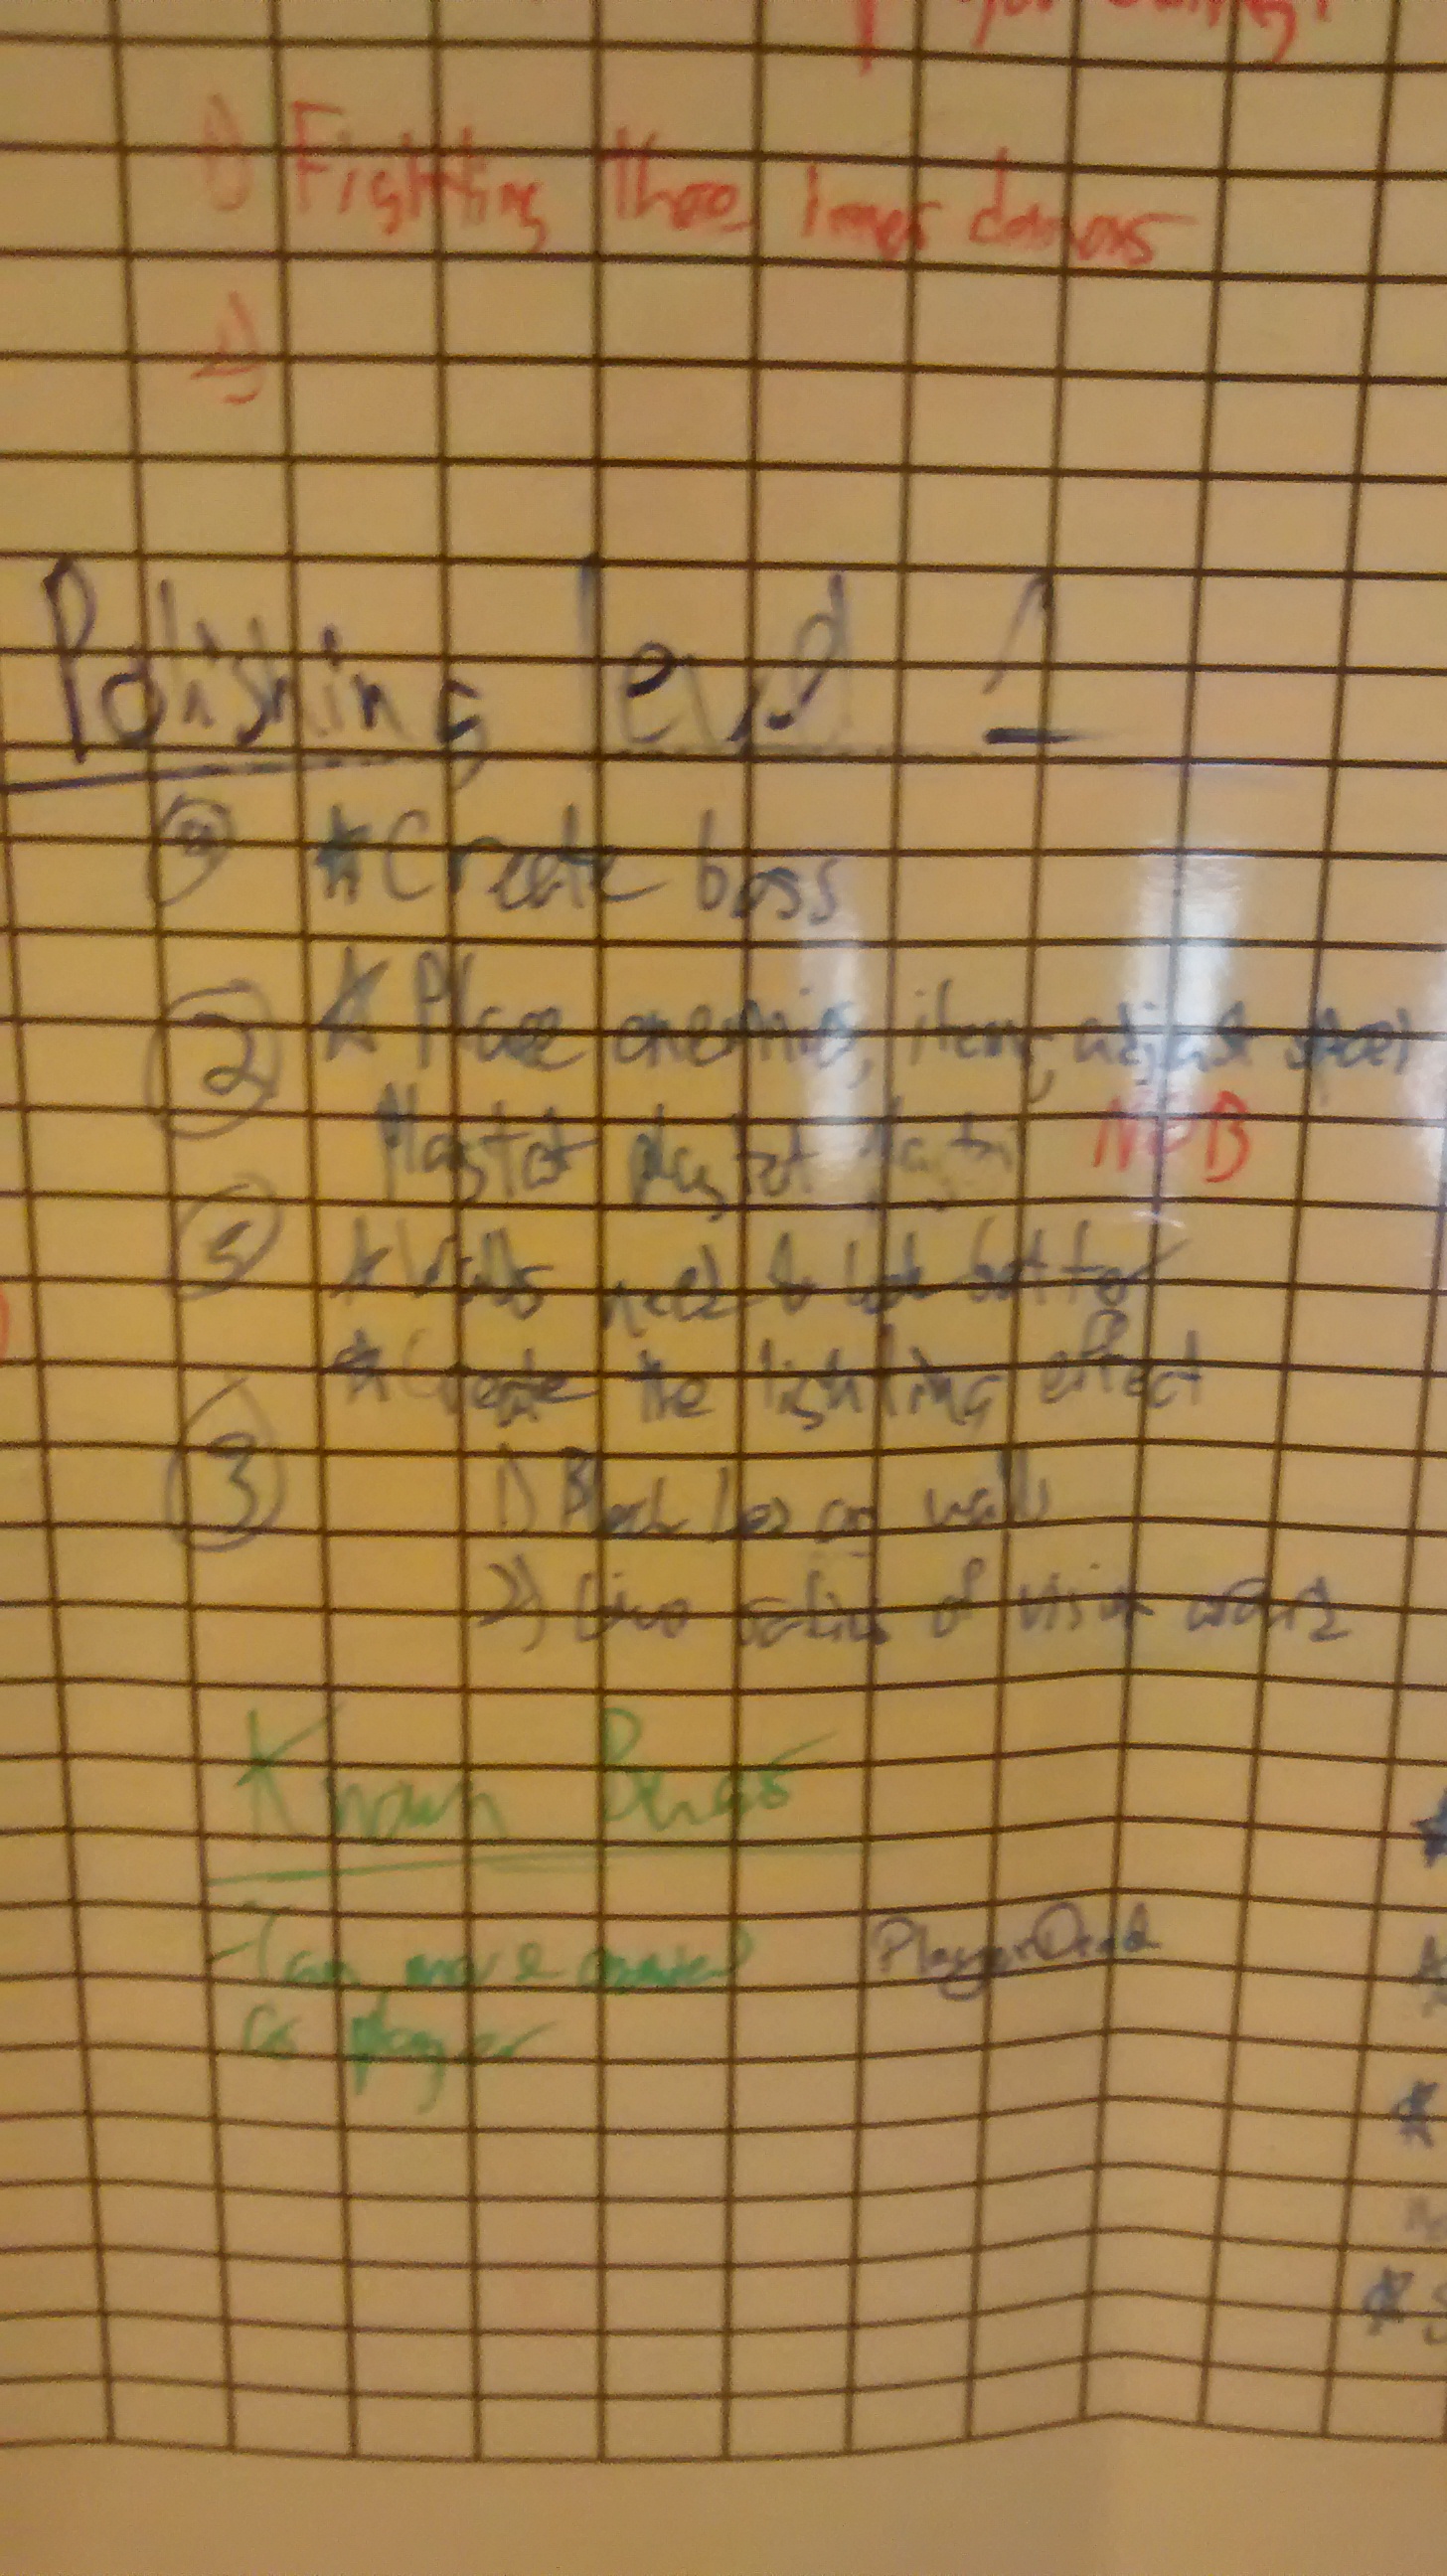 1) Fighting those inner demons
2)
Polishing level 1
* Create boss
② * Place enemies, items, adjust
Playtest playtest playtest
⑤ * Walls need to look better
* Create the lighting effect
③ 1) Block on walls
2) radius of vision
Known Bugs
- Can move
as player
PlayerDead